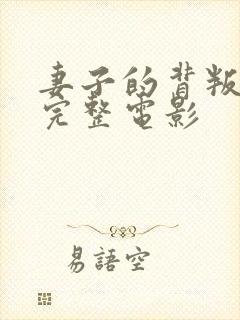 妻子的背叛
完整電影
易語空